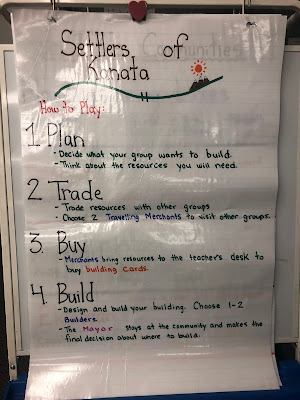 Settlers of
Kanata
How to Play:
1. Plan
- Decide what your group wants to build.
- Think about the resources you will need.
2. Trade
- Trade resources with other groups
- Choose 2 Travelling Merchants to visit other groups.
3. Buy
- Merchants bring resources to the teacher's desk to
buy building cards.
4. Build
- Design and build your building. Choose 1-2
Builders.
- The Mayor stays at the community and makes the
final decision about where to build.